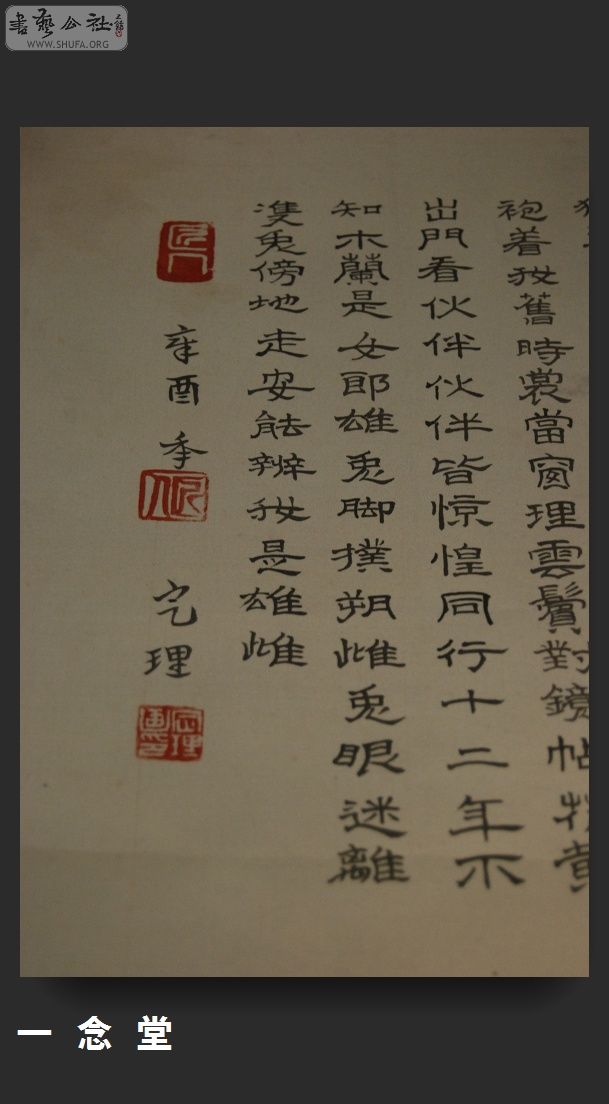 書藝公社
WWW.SHUFA.ORG
袍着我舊時裳當窗理雲鬢對鏡帖花黃
出門看伙伴伙伴皆惊惶同行十二年不
知木蘭是女郎雄兎脚撲朔雌兎眼迷離
雙兎傍地走安能辨我是雄雌
辛酉季
定理
一念堂